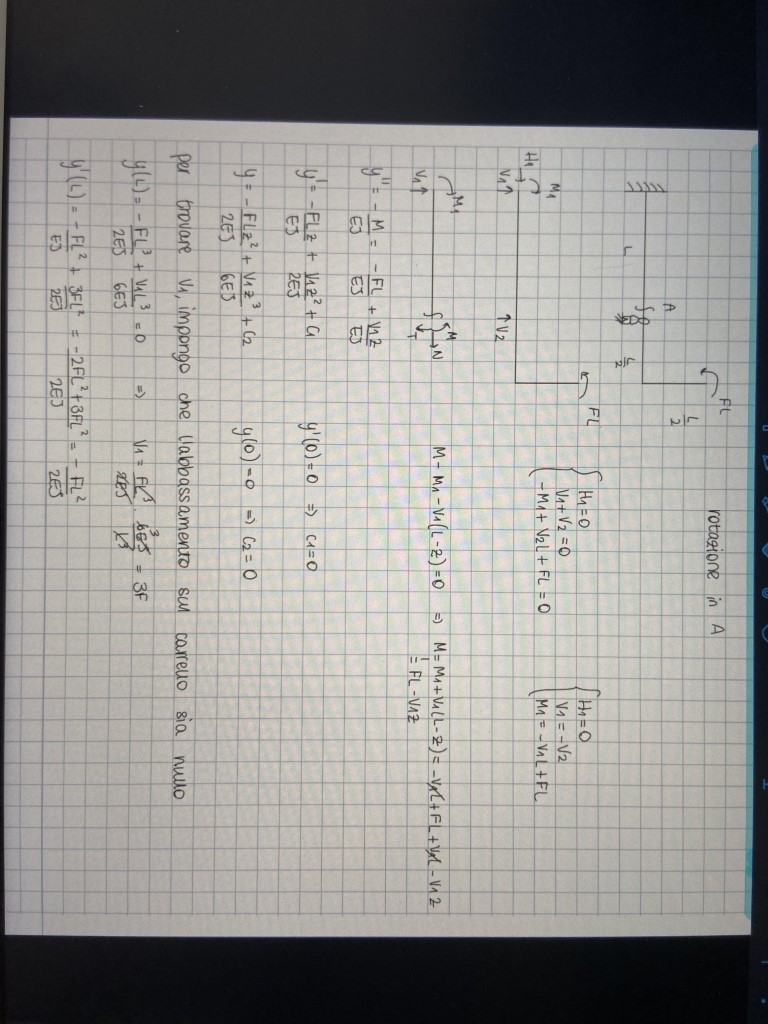 rotazione in A
FL
A
L
L/2
L/2
M1
H1
V1
V2
FL
{ H1 = 0
V1 + V2 = 0
-M1 + V2L + FL = 0
{ H1 = 0
V1 = -V2
M1 = -V1L + FL
M1
V1
M
N
T
M - M1 - V1(L-z) = 0 => M = M1 + V1(L-z) = -V1L + FL + V1L - V1z
= FL - V1z
y'' = -M/EJ = -FL/EJ + V1z/EJ
y' = -FLz/EJ + V1z²/2EJ + C1 y'(0) = 0 => C1 = 0
y = -FLz²/2EJ + V1z³/6EJ + C2 y(0) = 0 => C2 = 0
per trovare V1, impongo che l'abbassamento sul carrello sia nullo
y(L) = -FL³/2EJ + V1L³/6EJ = 0 => V1 = FL³/2EJ · 6EJ/L³ 3 = 3F
y'(L) = -FL²/EJ + 3FL²/2EJ = -2FL² + 3FL²/2EJ = -FL²/2EJ